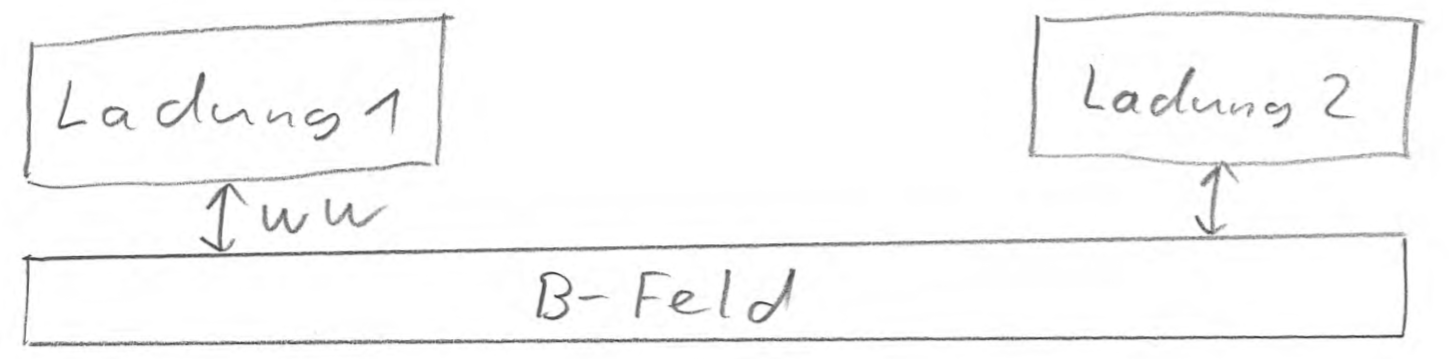 Ladung 1
Ladung 2
WW
B-Feld